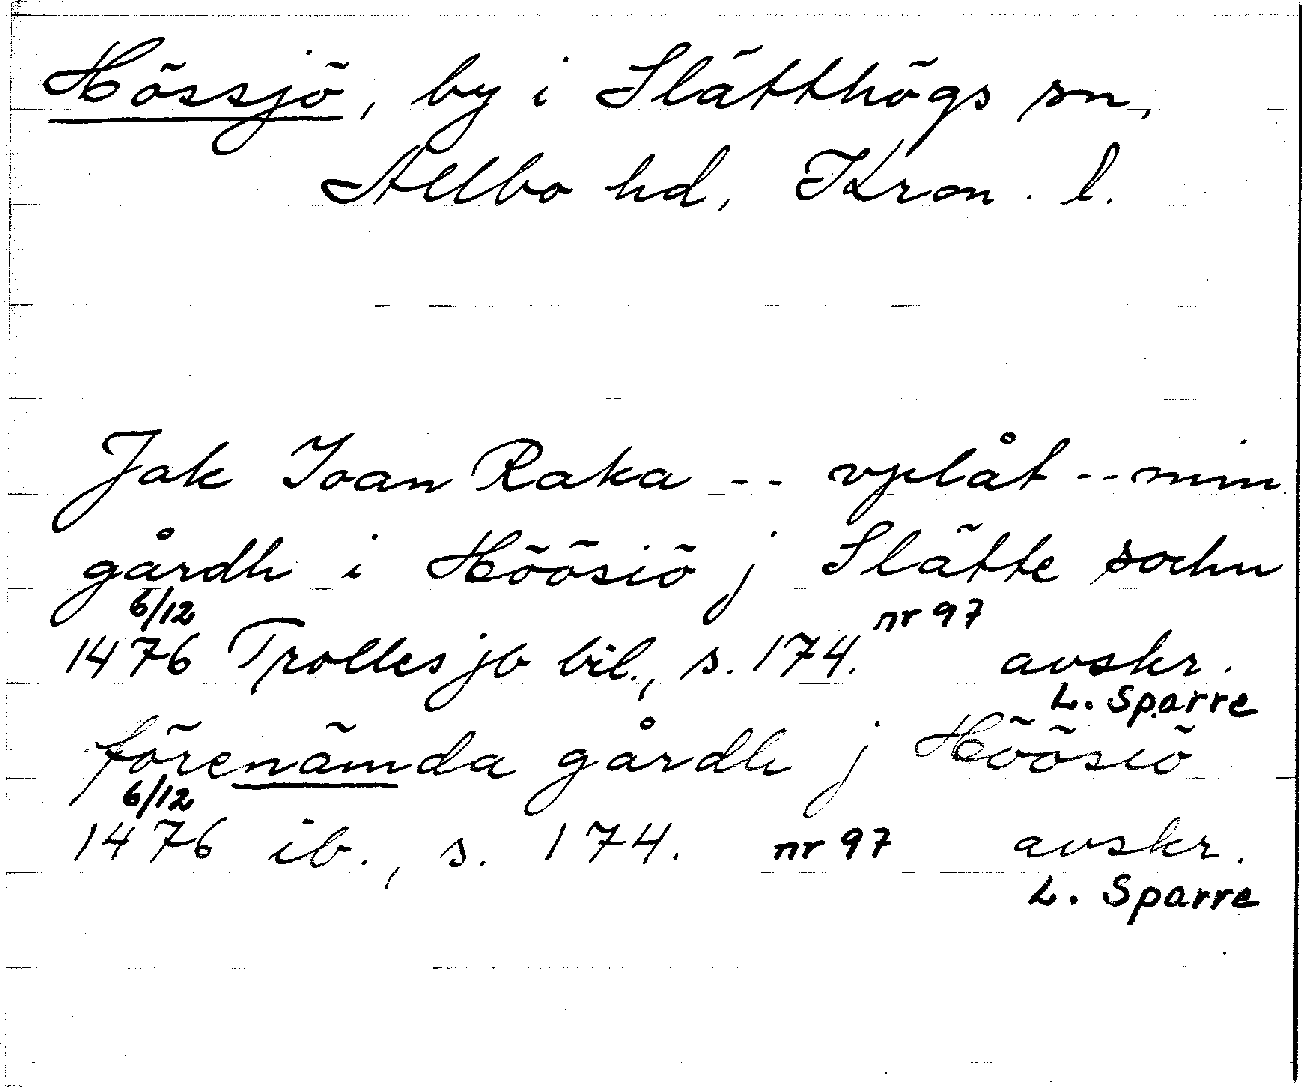 Hössjö, by i Slätthögs sn,
Allbo hd, Kron. l.
Jak Ioan Raka -- vplåt -- min
gårdh i Höösiö j Slätte sochn
6/12
1476 Trolles jb bil., s. 174. nr 97 avskr.
L. Sparre
förenämda gårdh j Höösiö
6/12
1476 ib., s. 174. nr 97 avskr.
L. Sparre